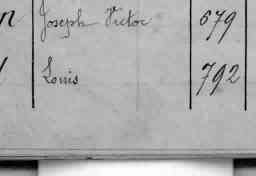 Joseph Victor 679
Louis 792